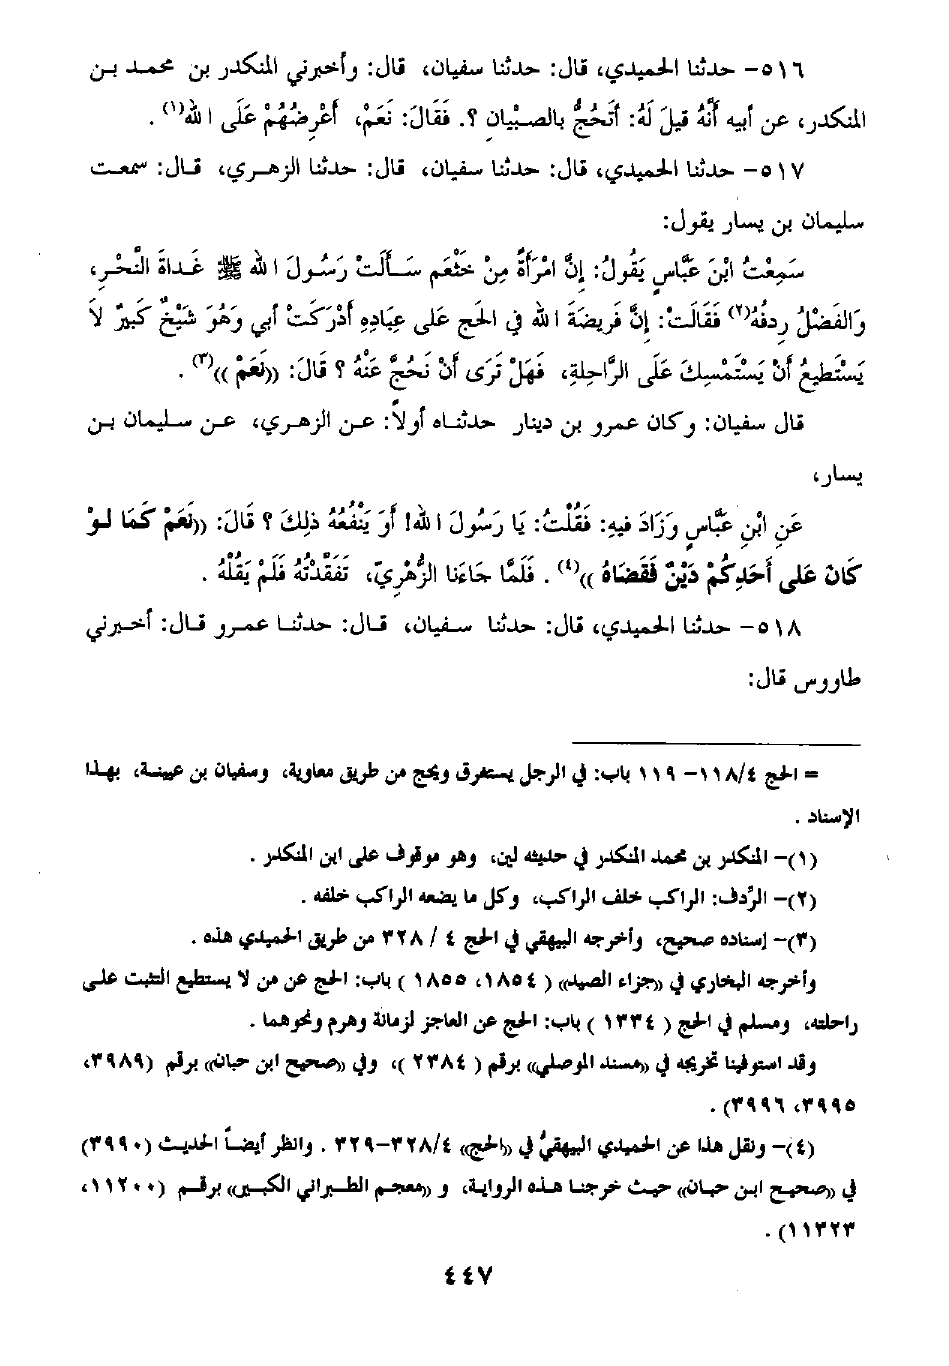 ٥١٦- حدثنا الحميدي، قال: حدثنا سفيان، قال: وأخبرني المنكدر بن محمد بن
المنكدر، عن أبيه أَنَّهُ قيلَ لَهُ: أَتَحُجُّ بالصبْيانِ ؟. فَقَالَ: نَعَمْ، أَعْرِضُهُمْ عَلَى الله(١) .
٥١٧- حدثنا الحميدي، قال: حدثنا سفيان، قال: حدثنا الزهري، قال: سمعت
سليمان بن يسار يقول:
سَمِعْتُ ابْنَ عَبَّاسٍ يَقُولُ: إِنَّ امْرَأَةً مِنْ خَثْعَم سَأَلَتْ رَسُولَ الله ﷺ غَداةَ النَّحْرِ،
وَالفَضْلُ رِدفُهُ(٢) فَقَالَتْ: إِنَّ فَرِيضَةَ الله في الحَج عَلى عِبَادِهِ أَدْرَكَتْ أَبي وَهُوَ شَيْخٌ كَبيرٌ لاَ
يَسْتَطيعُ أَنْ يَسْتَمْسِكَ عَلَى الرَّاحِلةِ، فَهَلْ تَرَى أَنْ نَحُجَّ عَنْهُ ؟ قَالَ: ((نَعَمْ ))(٣) .
قال سفيان: وكان عمرو بن دينار حدثناه أولاً: عن الزهري، عن سليمان بن
يسار،
عَنِ ابْنِ عَبَّاسٍ وَزَادَ فيهِ: فَقُلْتُ: يَا رَسُولَ الله! أَوَ يَنْفَعُهُ ذلِكَ ؟ قَالَ: ((نَعَمْ كَمَا لَوْ
كَانَ عَلى أَحَدِكُمْ دَيْنٌ فَقَضَاهُ ))(٤) . فَلَمَّا جَاءَنَا الزُّهْرِيّ، تَفَقَّدْتُهُ فَلَمْ يَقُلْهُ .
٥١٨- حدثنا الحميدي، قال: حدثنا سفيان، قال: حدثنا عمرو قال: أخبرني
طاووس قال:
= الحج ٤/ ١١٨- ١١٩ باب: في الرجل يستغرق ويحج من طريق معاوية، وسفيان بن عيينة، بهذا
الإسناد .
(١)- المنكدر بن محمد المنكدر في حديثه لين، وهو موقوف على ابن المنكدر .
(٢)- الرِّدف: الراكب خلف الراكب، وكل ما يضعه الراكب خلفه .
(٣)- إسناده صحيح، وأخرجه البيهقي في الحج ٤ / ٣٢٨ من طريق الحميدي هذه .
وأخرجه البخاري في «جزاء الصيد» ( ١٨٥٤، ١٨٥٥ ) باب: الحج عن من لا يستطيع التثبت على
راحلته، ومسلم في الحج ( ١٣٣٤ ) باب: الحج عن العاجز لزمانة وهرم ونحوهما .
وقد استوفينا تخريجه في «مسند الموصلي» برقم ( ٢٣٨٤ )، وفي «صحيح ابن حبان» برقم (٣٩٨٩،
٣٩٩٥، ٣٩٩٦) .
(٤)- ونقل هذا عن الحميدي البيهقيُّ في «الحج» ٤/ ٣٢٨-٣٢٩ . وانظر أيضاً الحديث (٣٩٩٠)
في «صحيح ابن حبان» حيث خرجنا هذه الرواية، و «معجم الطبراني الكبير» برقم (١١٢٠٠،
١١٣٢٣) .
٤٤٧